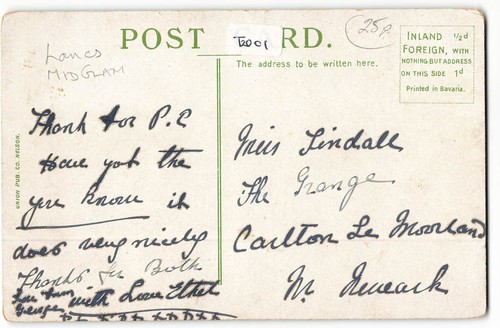 POST CARD.
T2001
25p
Lancs
MIDGLAM
The address to be written here.
INLAND ½d
FOREIGN, WITH
NOTHING BUT ADDRESS
ON THIS SIDE 1d
Printed in Bavaria.
UNION PUB. CO. NELSON.
Thank for P.C
Have got the
you know it
does very nicely
Thanks for Both
with Love Ethel
George
Miss Tindall
The Grange
Carlton Le Moorland
Nr Newark